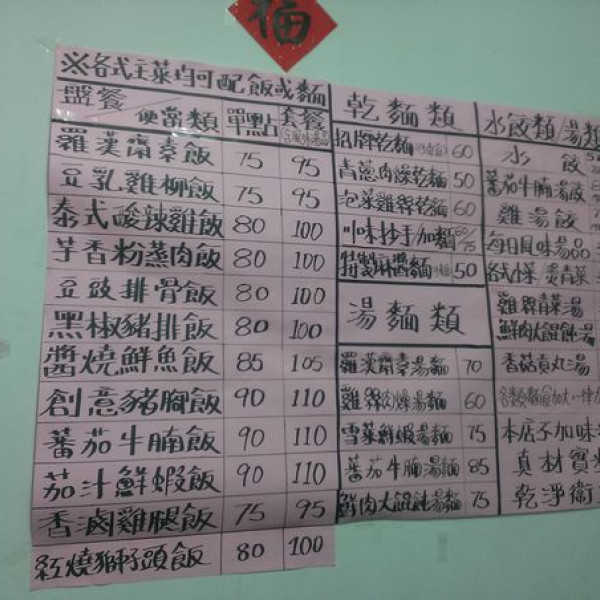 福
※各式主菜均可配飯或麵
盤餐 便當類 單點 套餐
羅漢齋素飯 75 95
豆乳雞柳飯 75 95
泰式酸辣雞飯 80 100
芋香粉蒸肉飯 80 100
豆豉排骨飯 80 100
黑椒豬排飯 80 100
醬燒鮮魚飯 85 105
創意豬腳飯 90 110
蕃茄牛腩飯 90 110
茄汁鮮蝦飯 90 110
香滷雞腿飯 75 95
紅燒獅子頭飯 80 100
乾麵類
招牌乾麵 60
青蔥肉燥乾麵 50
泡菜雞絲乾麵 60
川味抄手/加麵 60/75
特製麻醬麵 50
湯麵類
羅漢齋素湯麵 70
雞絲肉燥湯麵 60
雪菜鮮蝦湯麵 75
蕃茄牛腩湯麵 85
鮮肉大餛飩湯麵 75
水餃類/湯類
水餃
蕃茄牛腩湯餃
雞湯餃
每日風味湯品
各式小菜 燙青菜
雞絲青菜湯
鮮肉大餛飩湯
香菇貢丸湯
本店不加味
真材實
乾淨衛